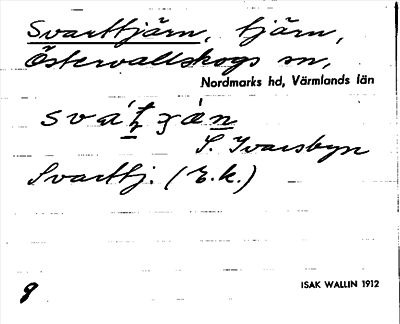 Svarttjärn, tjärn,
Östervallskogs sn,
Nordmarks hd, Värmlands län
S. Ivarsbyn
Svarttj. (E.k.)
8
ISAK WALLIN 1912